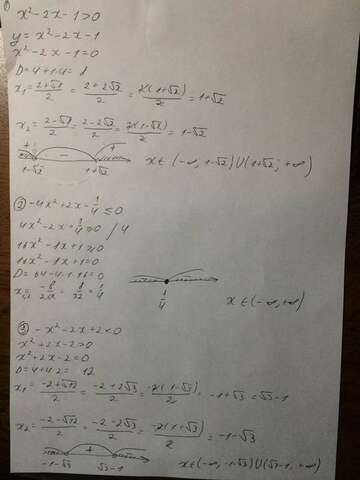 ① x²-2x-1>0
y=x²-2x-1
x²-2x-1=0
D=4+1·4=8
x₁=(2+√8)/2=(2+2√2)/2=2(1+√2)/2=1+√2
x₂=(2-√8)/2=(2-2√2)/2=2(1-√2)/2=1-√2
+ - +
1-√2 1+√2 x∈(-∞, 1-√2)∪(1+√2, +∞)
② -4x²+2x-1/4≤0
4x²-2x+1/4≥0 /4
16x²-8x+1≥0
16x²-8x+1=0
D=64-4·1·16=0
x=-b/2a=8/32=1/4
1/4
x∈(-∞,+∞)
③ -x²-2x+2<0
x²+2x-2>0
x²+2x-2=0
D=4+4·2=12
x₁=(-2+√12)/2=(-2+2√3)/2=-2(1-√3)/2=-1+√3=√3-1
x₂=(-2-√12)/2=(-2-2√3)/2=-2(1+√3)/2=-1-√3
+
-1-√3 √3-1 x∈(-∞,-1-√3)∪(√3-1,+∞)